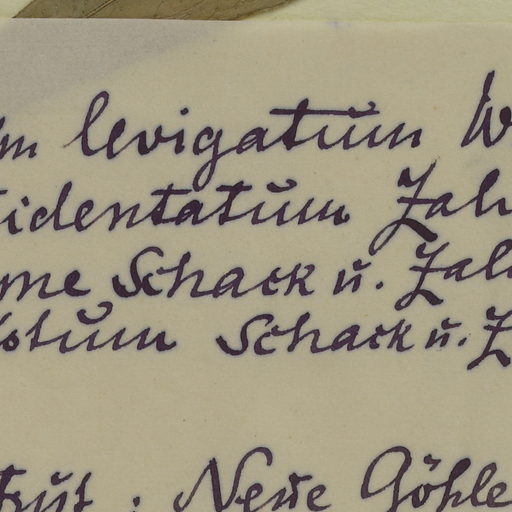 m levigatum W
identatum Zah
me Schack u. Zah
otum Schack u. Z
Neue Göhle